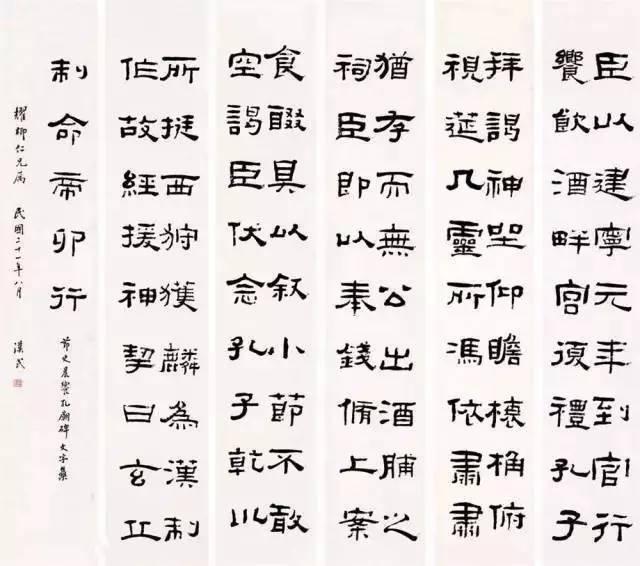 臣以建寧元年到官行
饗飲酒畔宮復禮孔子
拜謁神坐仰瞻榱桷俯
視筵几靈所馮依肅肅
猶存而無公出酒脯之
祠臣即以奉錢脩上案
食醊具以叙小節不敢
空謁臣伏念孔子乾川
所挺西狩獲麟為漢制
作故經援神契曰玄丘
制命帝卯行
節史晨饗孔廟碑文字集
耀卿仁兄屬 民國二十一年八月 漢民